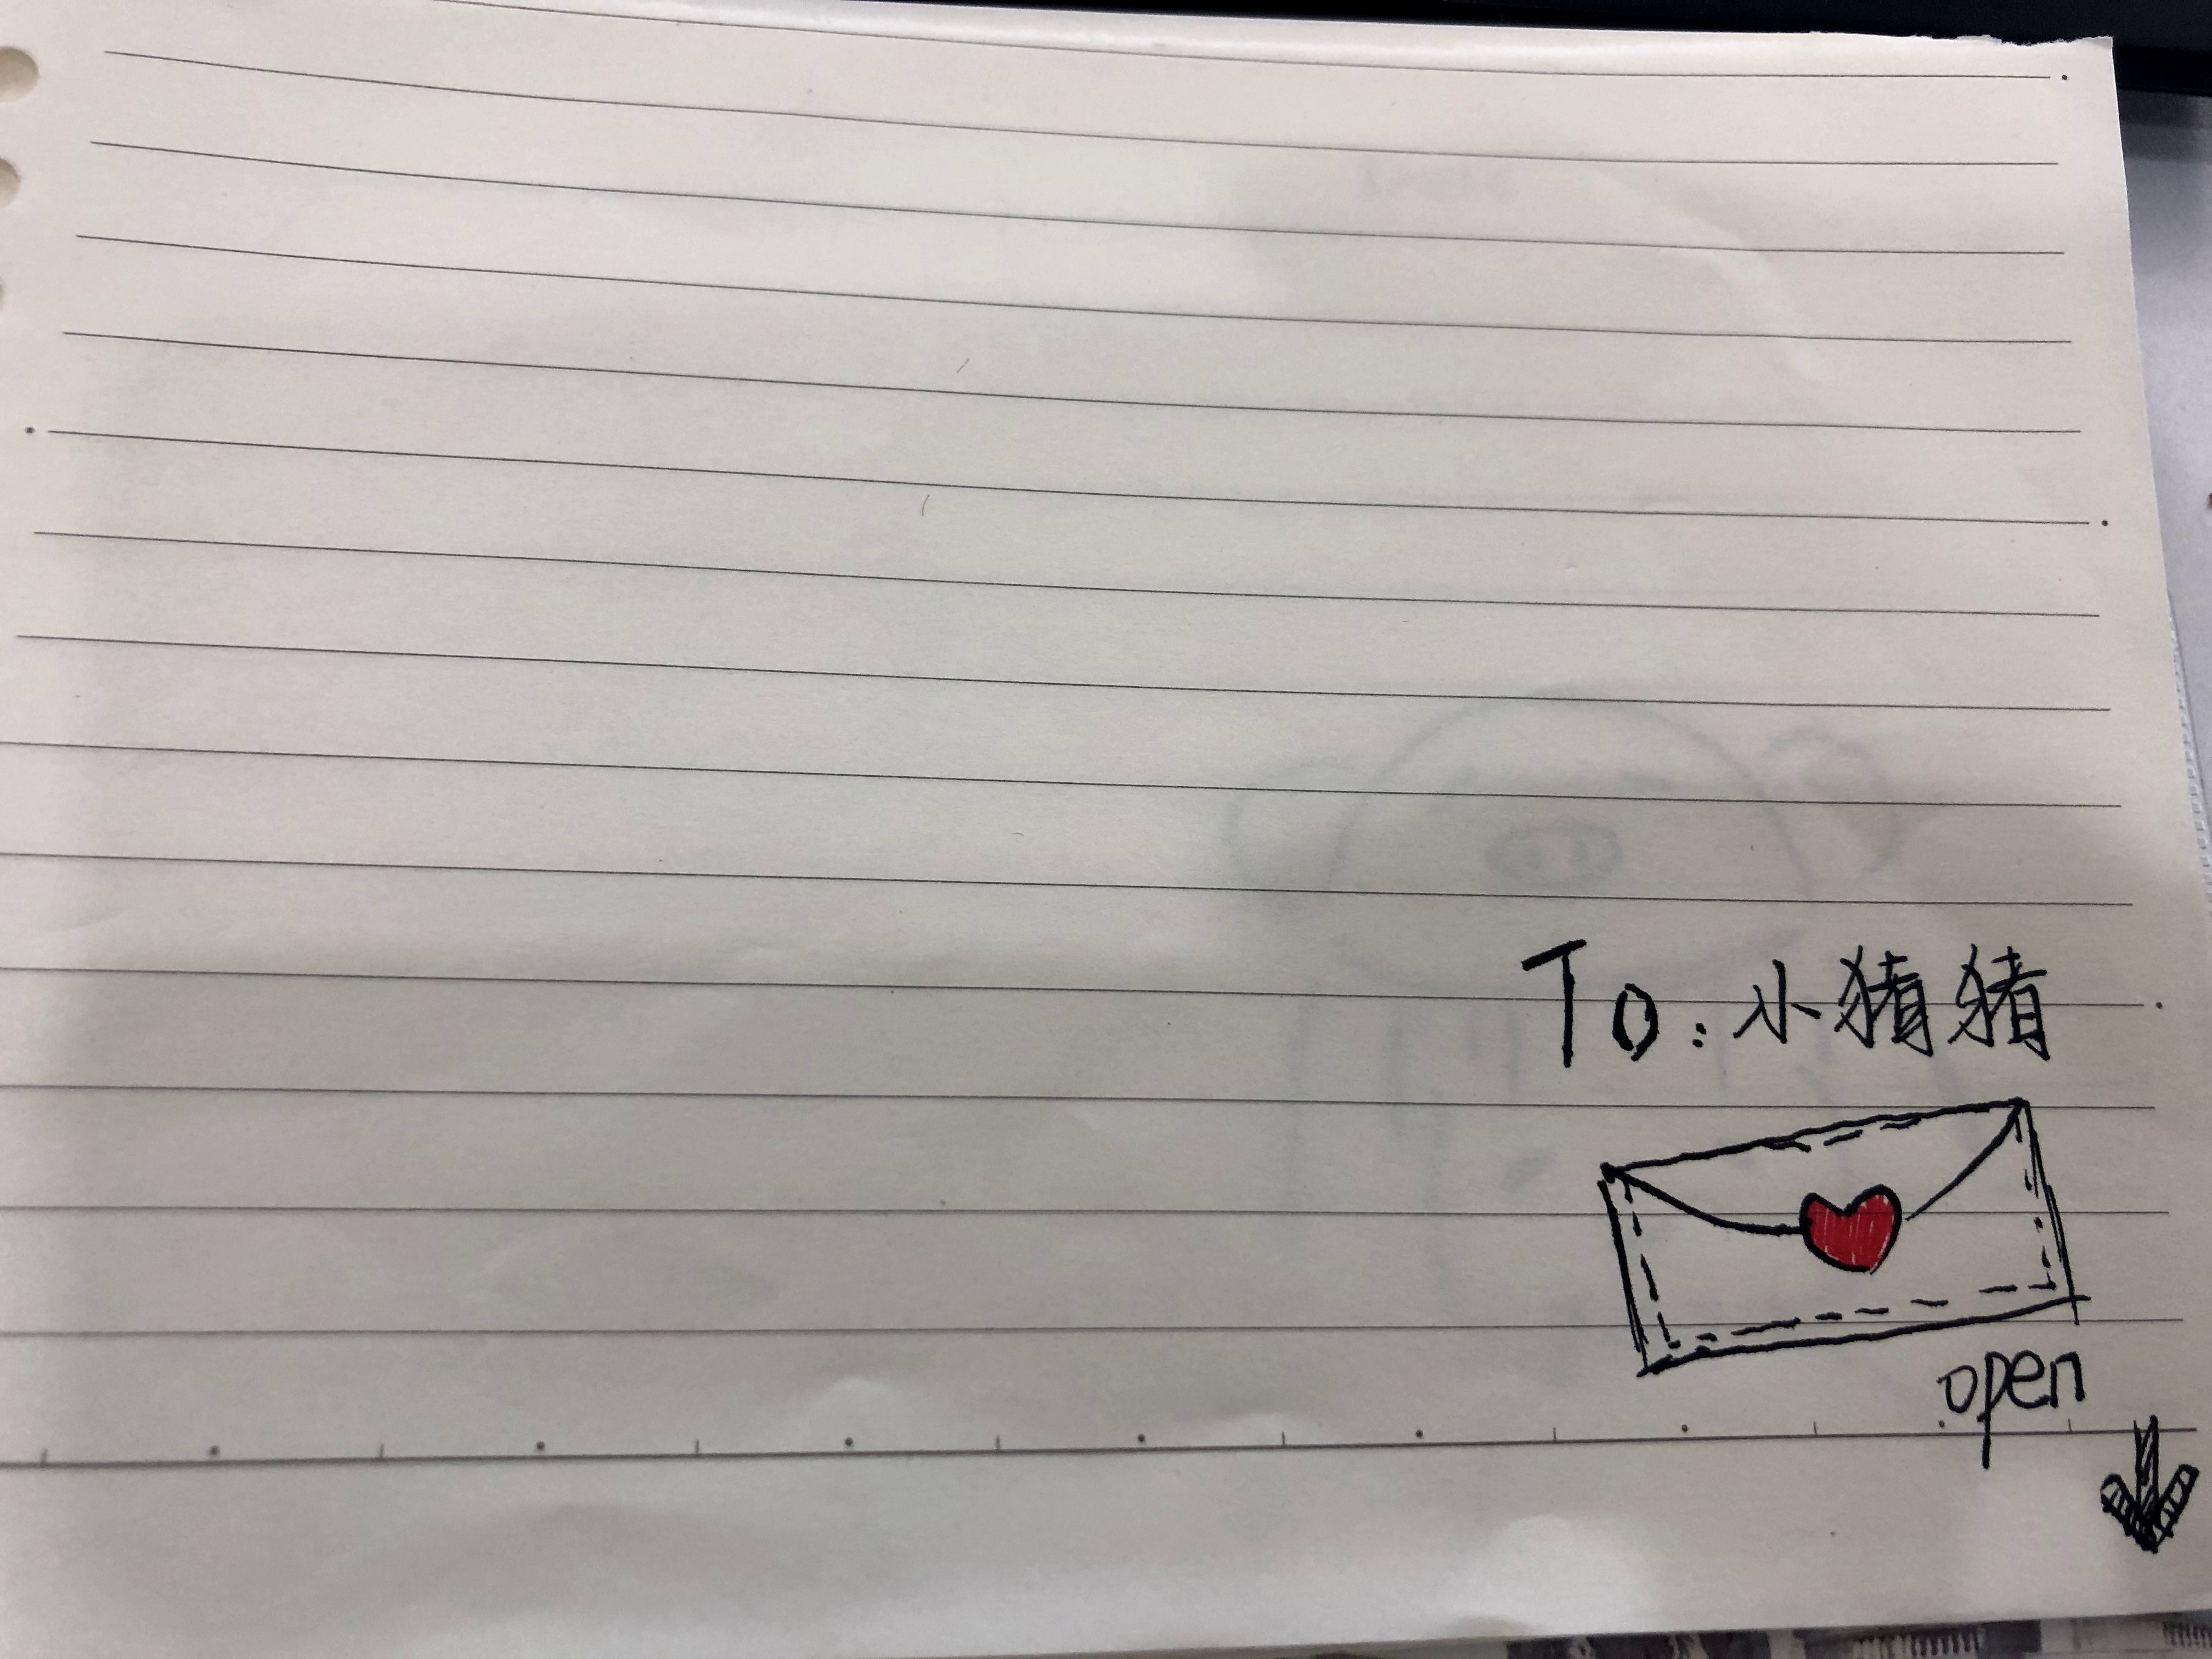 To：小猪猪
open